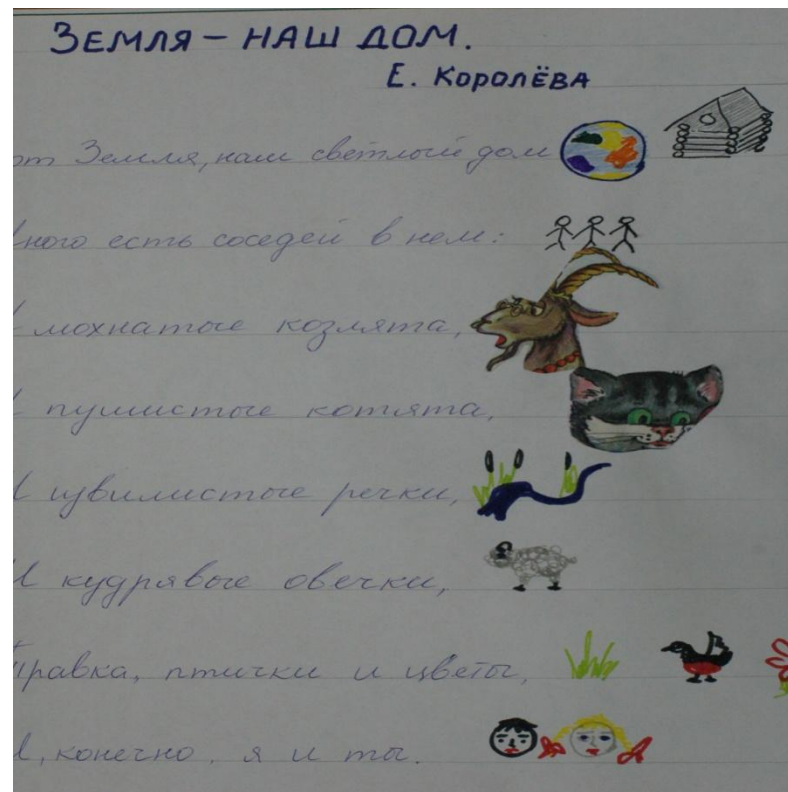 Земля – наш дом.
Е. Королёва
от Земля, наш светлый дом
ного есть соседей в нем:
мохнатые козлята,
И пушистые котята,
И извилистые речки,
И кудрявые овечки,
Травка, птички и цветы,
И, конечно, я и ты.